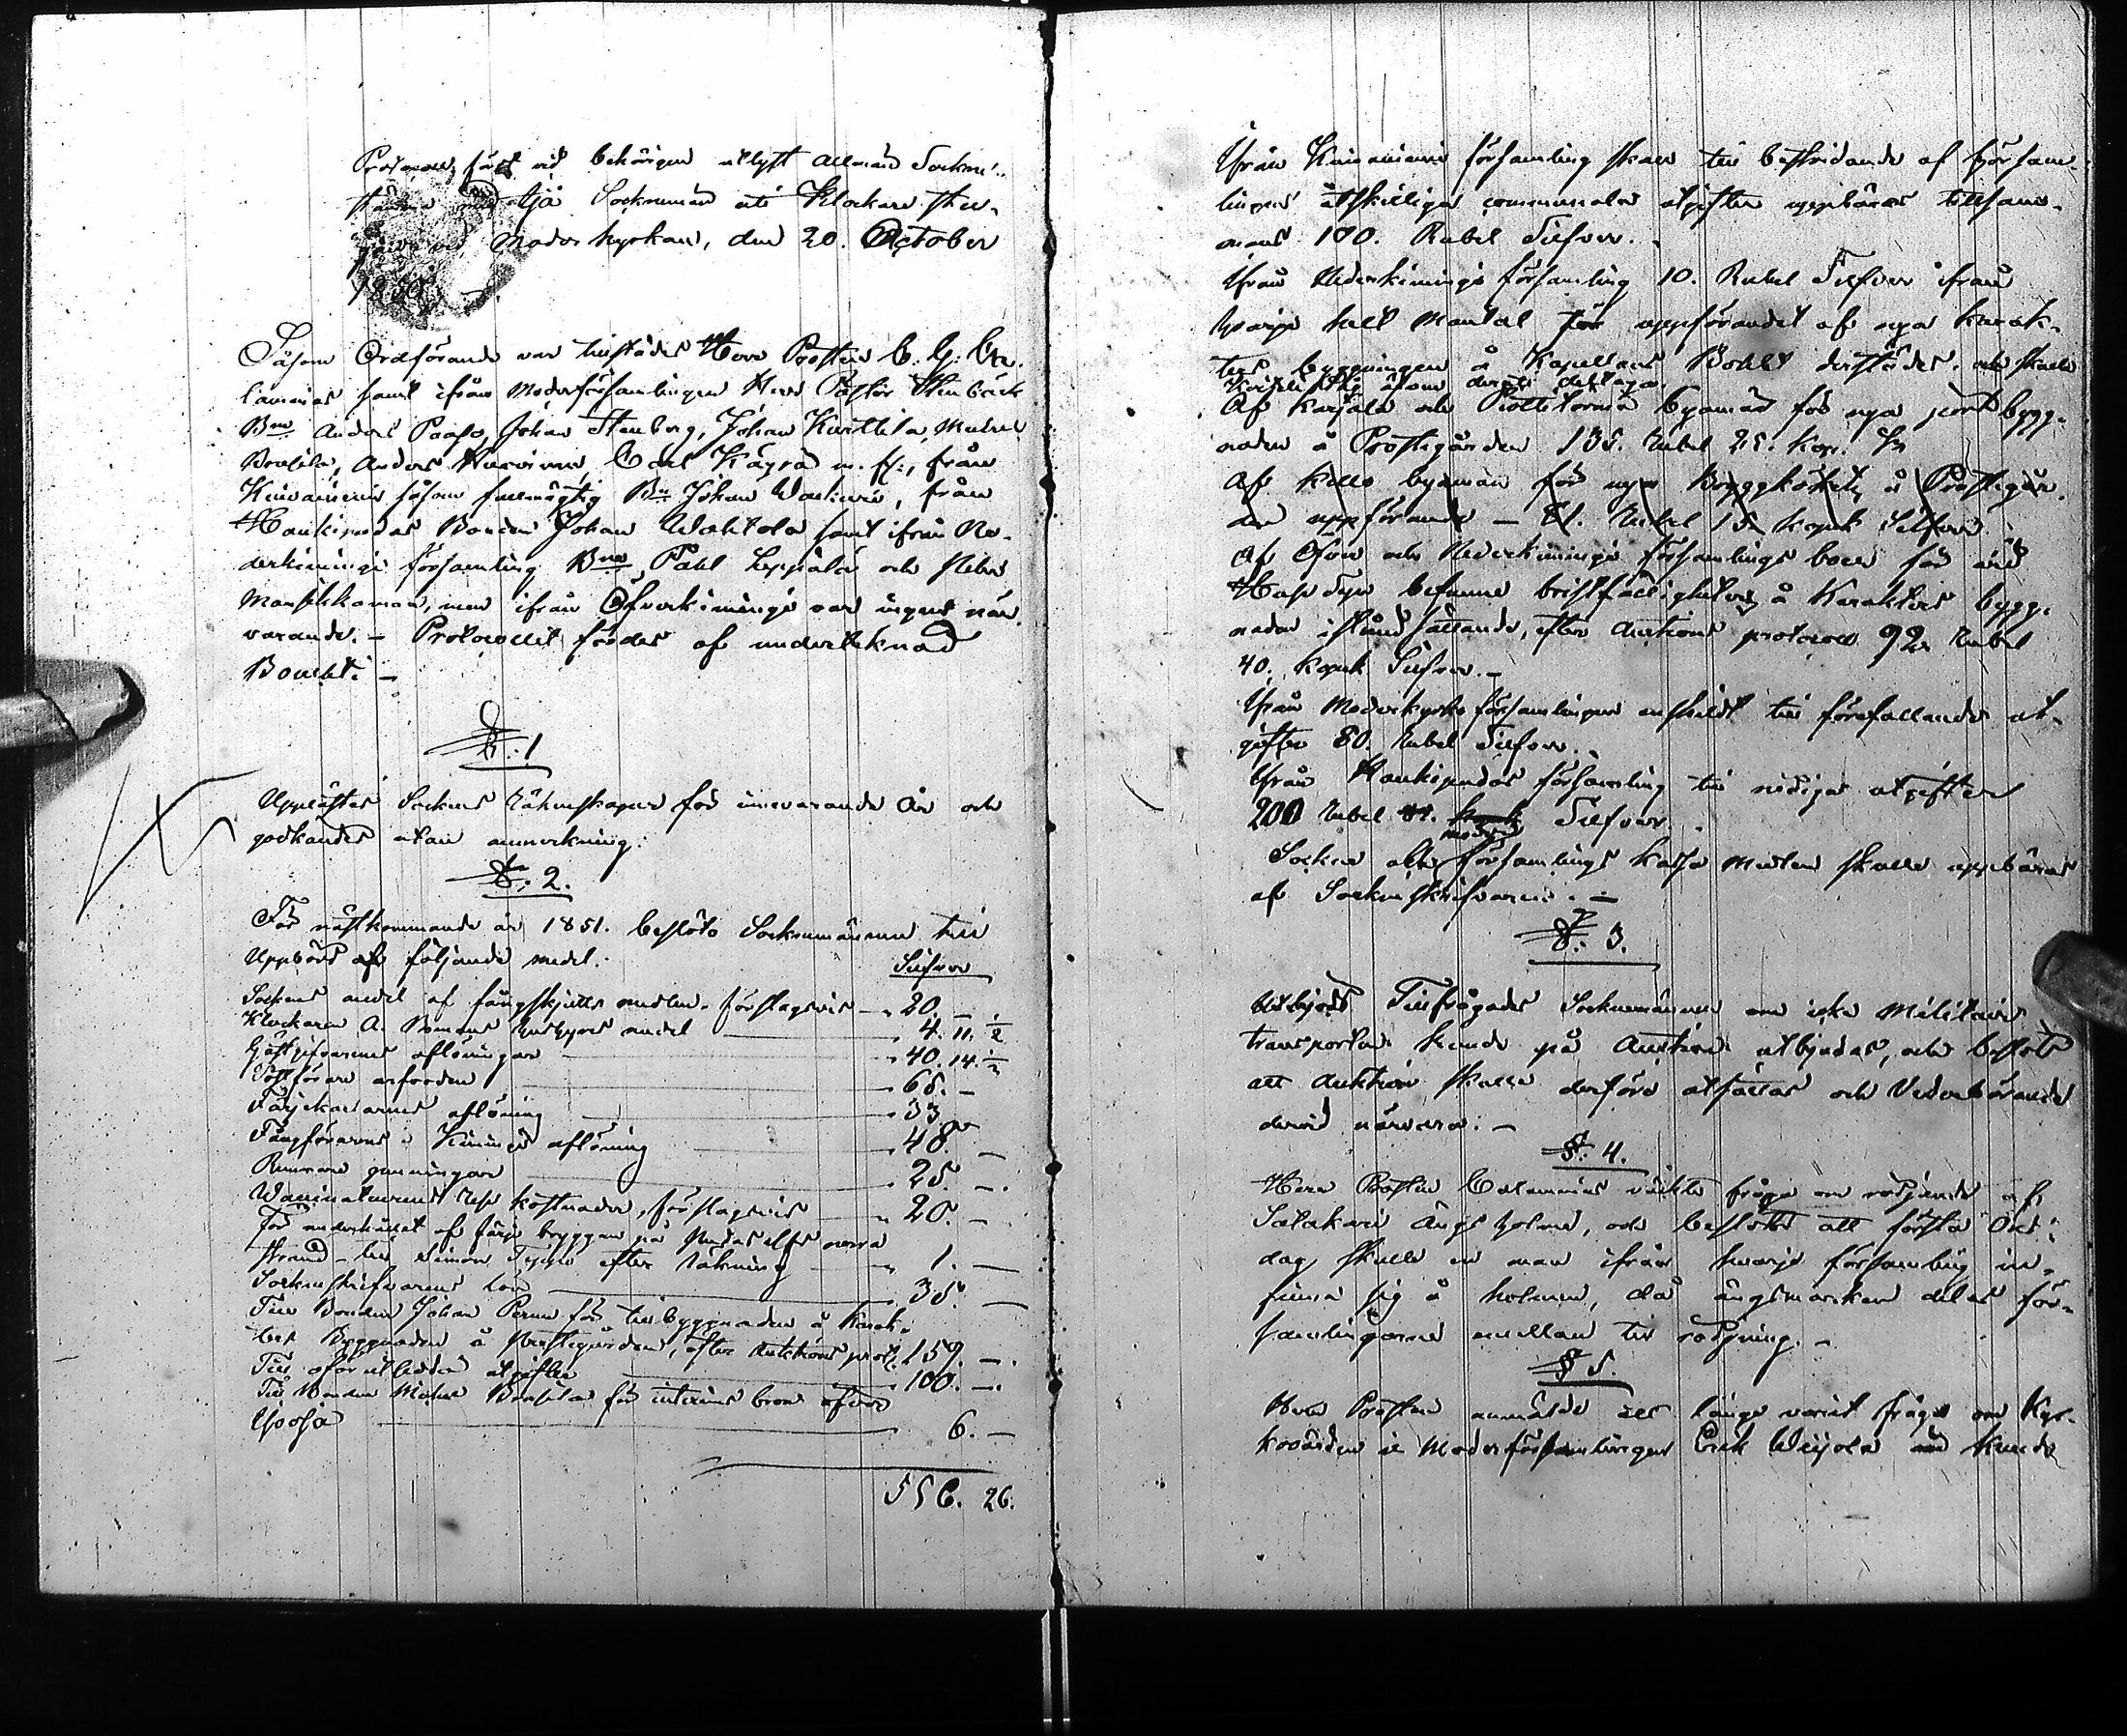 Protocoll, fördt vid behörigen utlyst allmän Sockne-
stämma med Ijo Socknemän uti Klockare stu-
gan vid Moderkyrkan, den 20. October
1850. –
Såsom Ordförande var tillstädes Herr Prosten C. G. Ca-
lamnius samt ifrån Moderförsamlingen Herr Pastor Stenbäck
Bne Anders Paaso, Johan Stenberg, Johan Kurttila,
Anders Hurvinen, Carl Käyrä m. fl., från
Kuivaniemi såsom fullmägtig Bn Johan, från
Haukipudas Bonden Johan Wahtola samt ifrån Ne-
derkiimingi församling Bne Påhl Leppälä och Petter
Manskkanen, men ifrån Öfverkiimingi var ingen när-
varande. – Protocollet fördes af undertecknad
§. 1
Upplästes Sockens räkenskaper för innevarande år och
godkändes utan anmerkning.
§. 2.
För nästkommande år 1851. beslöto Socknemännen till
Uppbörd af följande medel. Silfver
Sockens andel af fångskjuts medlen förslagsvis – 20. –
Klockaren A. Bomans andel – 4. 11. ½
Gästgifvarenes aflöningar – 40. 14. ½
Postförare arfvoden – 68. –
Färjekarlarnes aflöning – 33
Fångförarens i Kiimingi aflöning – 48. –
25. –
Waccinateurens rese kostnader, förslagsvis – 20. –
För underhållet af färje bryggan på Pudas elfs norra
strand – till Simon Typpö efter räkning – 1. –
Sockneskrifvarens lön – 35. –
Till Bonden Johan Pernu för tillbyggnaden å Karak-
ters Byggnaden å Prostegården, efter Auktions prot. 159. –
Till oförutsedda utgifter – 100. –
Till Bonden Michel för interims bron öfver
6. –
556. 26.
Ifrån Kuivaniemi församling skall till bestridande af försam-
lingens åtskilliga communala utgifter uppbäras tillsam-
mans 100. Rubel Silfver.
Ifrån Nederkiimingi församling 10. Rubel Silfver ifrån
hvarje helt Mantal för uppförandet af nya Karak-
ters byggningen å Kapellans Bohlet derstädes. och skulle
äfven deruti deltaga.
Af Karjala och byamän för nya bygg-
naden å Prostgården 135. Rubel 25. kop. Sr
Af Kello byamän för nya å Prostegår-
den uppförande – 61. Rubel 15 kopek Silfver.
Af Öfver och Nederkiimingi församlings boer för vid
Husesyn befunne bristfälligheter å Karakters bygg-
naden iståndsättande, efter Auctions protocoll 92. Rubel
40. kopek Silfver. –
Ifrån Moderkyrko församlingen enskildt till förefallande ut-
gifter 80. Rubel Silfver.
Ifrån Haukipudas församling till nödiga utgifter
200 Rubel Silfver.
Socken eller församlings kassa medlen skulle uppbäras
af Sockneskrifvaren. –
§. 3.
Tillfrågades Socknemännen om icke Militaire
transporten kunde på Auktion utbjudas, och beslöts
att Auktion skulle derföre utsättas och Vederbörande
dervid närvara. –
§. 4.
Herr Prosten Calamnius väckte fråga om rödjande af
Satakari Ängsholme, och beslöts att första Oct:
dag skulle en man ifrån hvarje församling in-
finna sig å holmen, då ängsmarken delas för-
samlingarne emellan till rödjning. –
§ 5.
Herr Prosten anmälde det länge varit fråga om Kyr-
kovärden i Moderförsamlingen Erik Weijola kunde